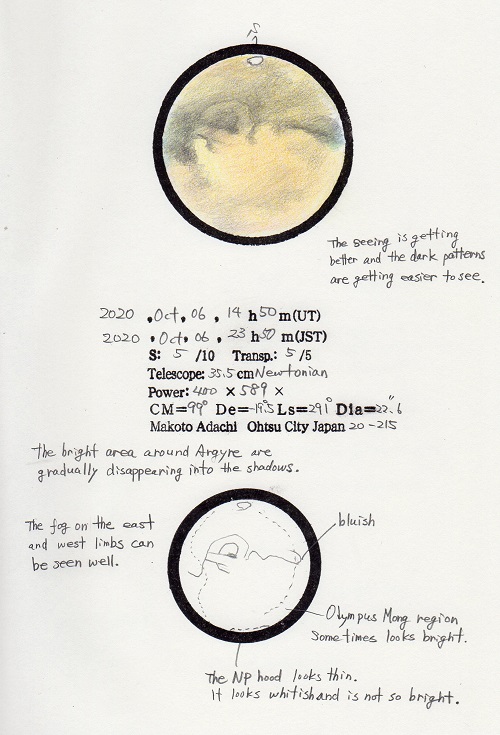 S
The seeing is getting
better and the dark patterns
are getting easier to see.
2020 , Oct, 06 , 14 h 50 m(UT)
2020 , Oct, 06 , 23 h 50 m(JST)
S: 5 /10 Transp.: 5 /5
Telescope: 35.5 cm Newtonian
Power: 400 × 589 ×
CM=99° De=-19.5° Ls=291° Dia=22.″6
Makoto Adachi Ohtsu City Japan 20-215
the bright area around Argyre are
gradually disappearing into the shadows.
The fog on the east
and west limbs can
be seen well.
bluish
Olympus Mong region
Sometimes looks bright.
The NP hood looks thin.
It looks whitish and is not so bright.